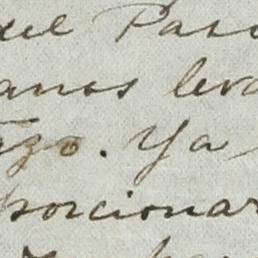 del Paso
anos leva
azo. Ya
porcionar